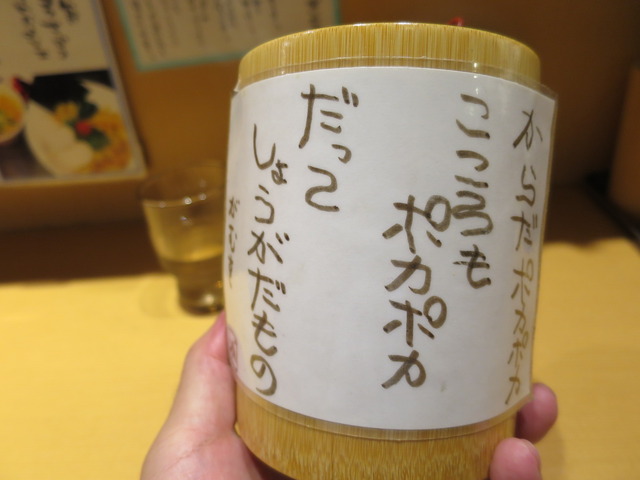 からだポカポカ
こころも
ポカポカ
だって
しょうがだもの